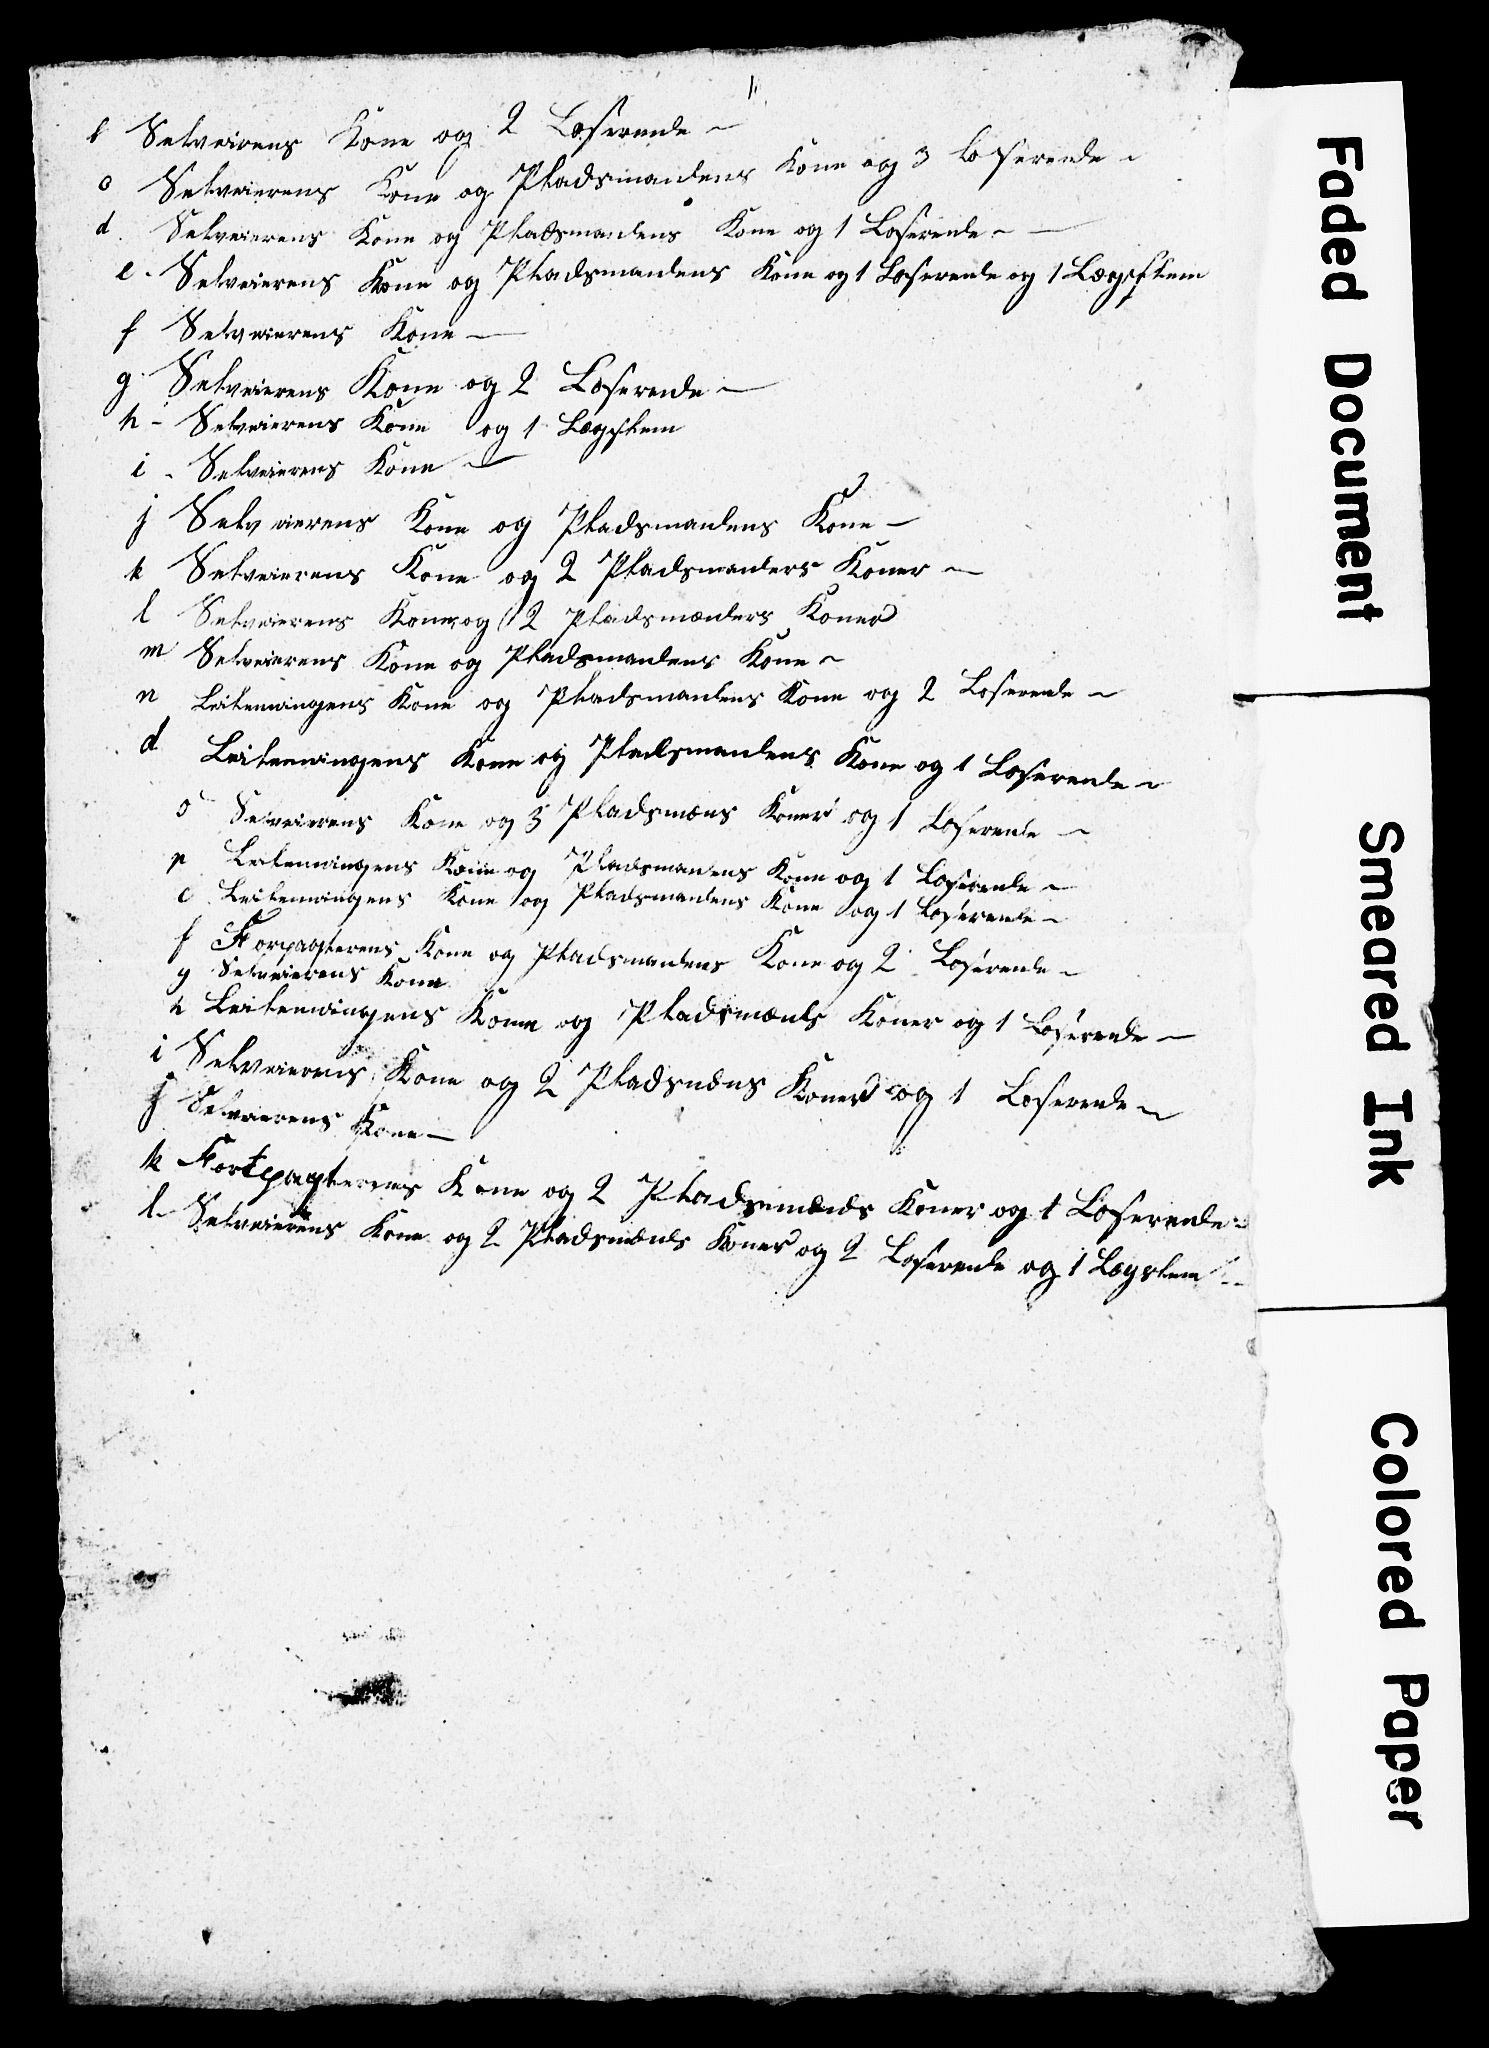 b Selveierens Kone og 2 Loserende ~
c Selveierens Kone og Pladsmandens Kone og 3 Loserende ~
d Selveierens Kone og Pladsmandens Kone og 1 Loserende ~
e - Selveierens Kone og Pladsmandens Kone og 1 Loserende og 1 Lægslem
f Selveierens Kone —
g Selveierens Kone og 2 Loserende —
h - Selveierens Kone og 1 Lægslem
i - Selveierens Kone —
j Selveierens Kone og Pladsmandens Kone —
k Selveierens Kone og 2 Pladsmanders Koner —
l Selveierens Kone og 2 Pladsmænders Koner
m Selveierens Kone og Pladsmandens Kone ~
n Leilændingens Kone og Pladsmandens Kone og 2 Loserende ~
d Leilændingens Kone og Pladsmandens Kone og 1 Loserende ~
o Selveierens Kone og 3 Pladsmæns Koner og 1 Loserende ~
p Leilændingens Kone og Pladsmandens Kone og 1 Loserende ~
e Leilændingens Kone og Pladsmandens Kone og 1 Loserende ~
f Forpagterens Kone og Pladsmandens Kone og 2 Loserende ~
g Selveierens Kone
h Leilændingens Kone og Pladsmænds Koner og 1 Loserende ~
i Selveierens Kone og 2 Pladsmæns Koner og 1 Loserende ~
j Selveierens Kone —
k Fortpagterens Kone og 2 Pladsmænds Koner og 1 Loserende
l - Selveierens Kone og 2 Pladsmænds Koner og 2 Loserende og 1 Lægslem
Faded Document
Smeared Ink
Colored Paper